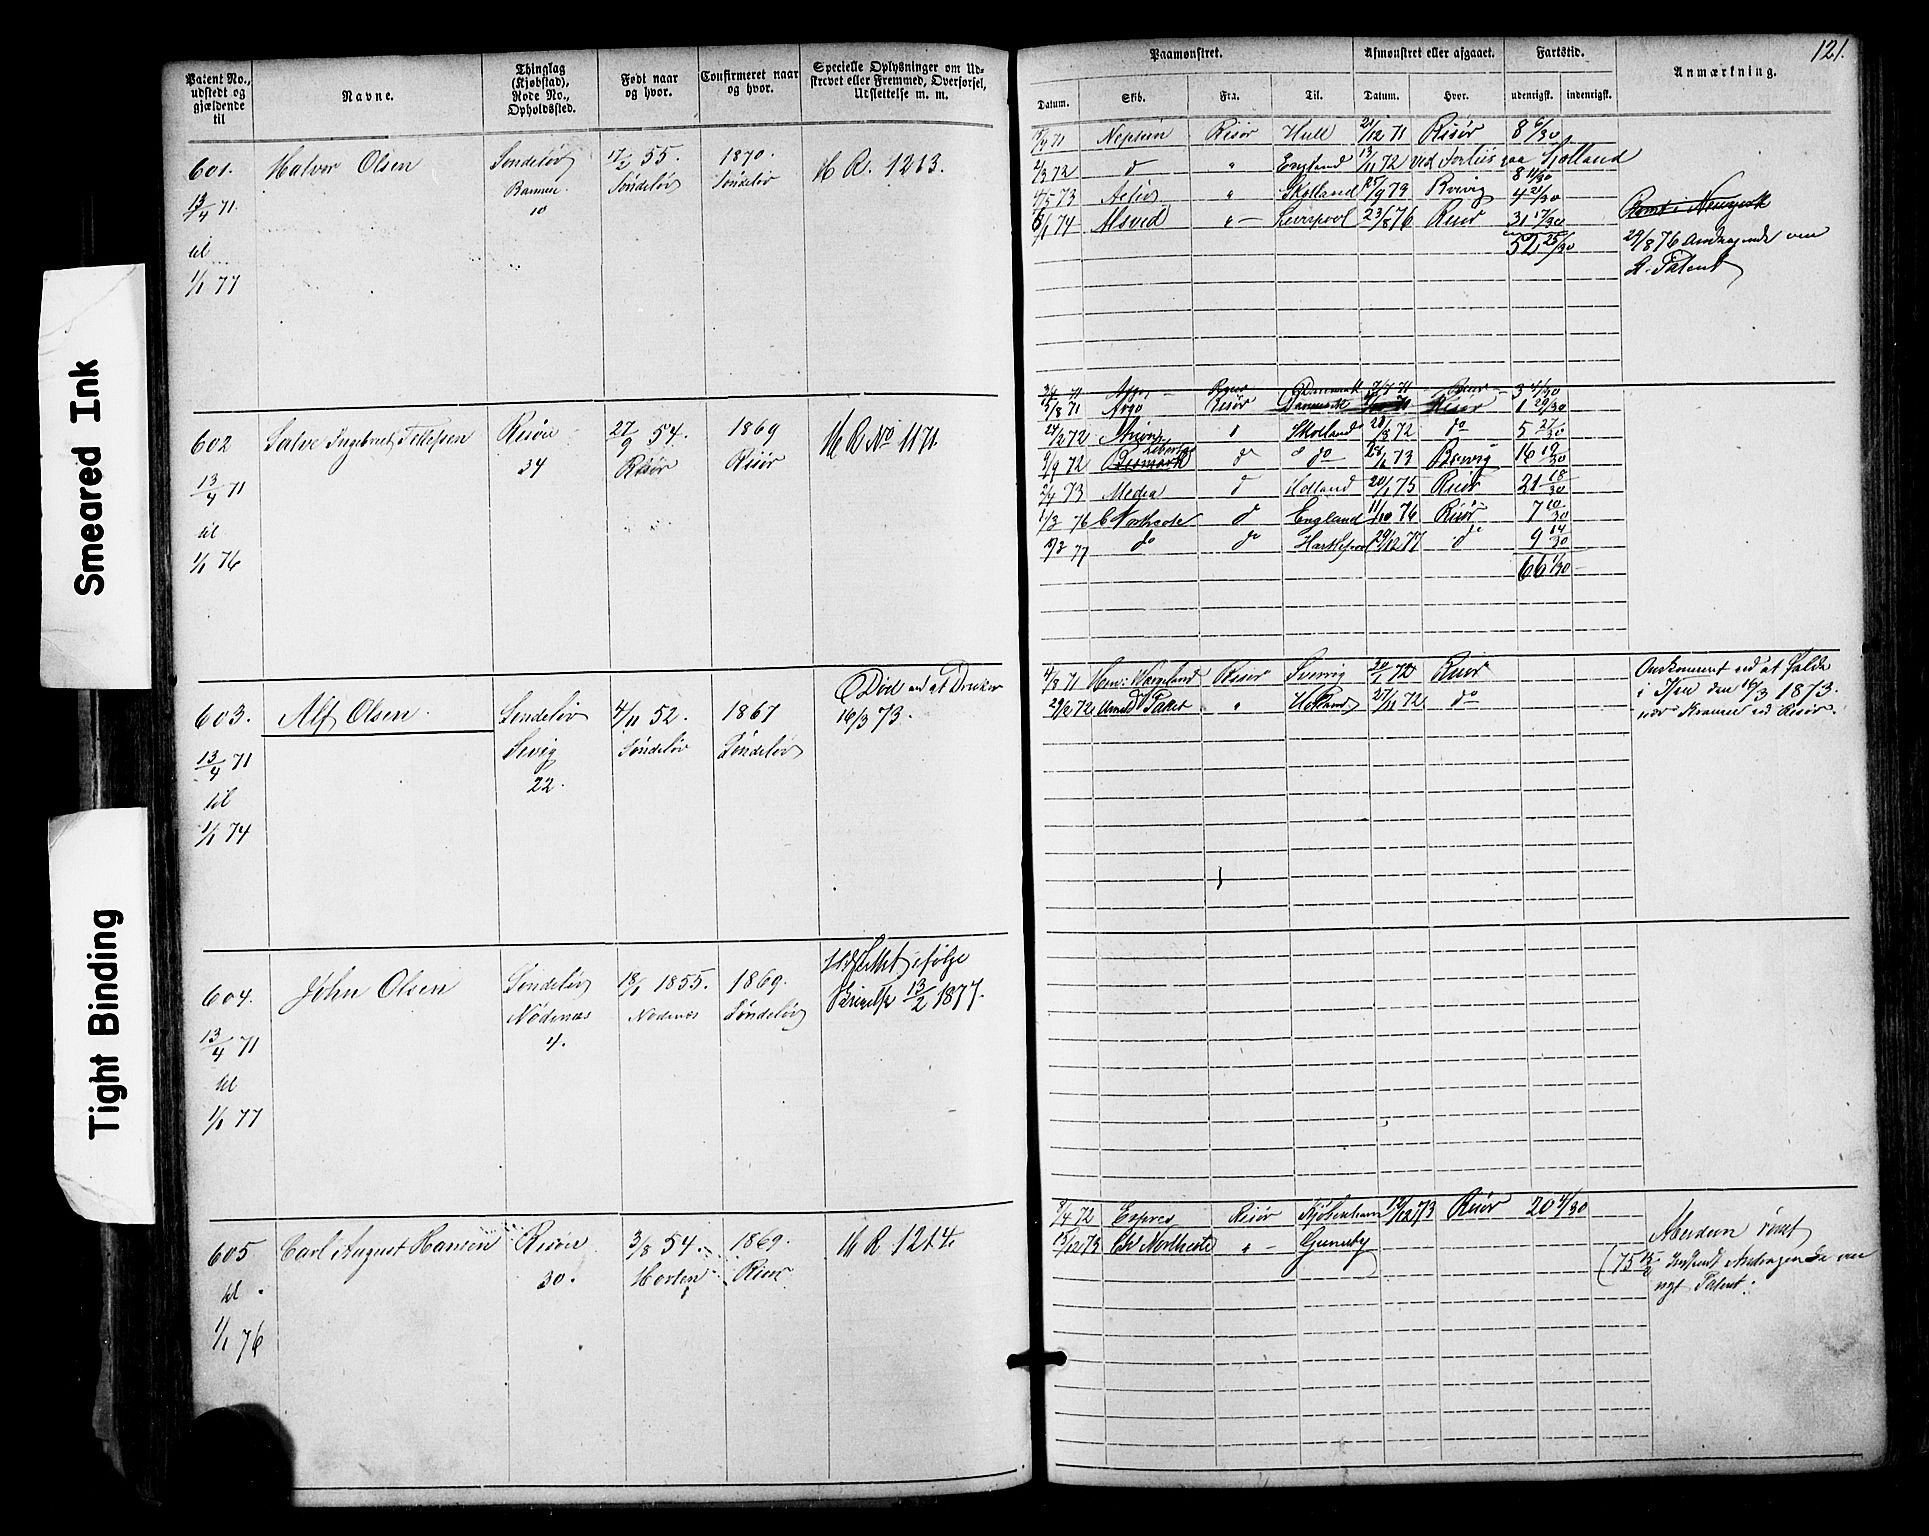 121.
Patent No., udstedt og gjældende til
Navne.
Thinglag (Kjøbstad), Rode No., Opholdssted.
Født naar og hvor.
Confirmeret naar og hvor.
Specielle Oplysninger om Udskrevet eller Fremmed, Overførsel, Udslettelse m. m.
Paamønstret.
Afmønstret eller afgaaet.
Fartstid.
Anmærkning.
Datum.
Skib.
Fra.
Til.
Datum.
Hvor.
udenrigst.
indenrigst.
601. Halvor Olsen Søndeløv 55. 1870. H R. 1213.
Søndeløv Søndeløv
10
13/4 71.
til
1/1 77
71 Neptun Risør Hull 21/12 71 Risør 8 6/30
2/3 72 d " England 13/11 72 ved Forliis paa Jylland
8 11/30
73 " Skotland 25/9 73 4 21/30
74 Alsved " Liverpool 23/8 76 Risør 31 17/30
52 25/30
29/8 76 Andragende om
Patent
602 Salve Ingebret Tellefsen Risøer 27/9 54. 1869 H R No 1171.
34 Risør Risør
13/4 71
til
1/1 76
71 Danmark 3 4/30
8 71 Argo Risør Danmark Risør 1 29/30
24/2 72 Skotland 28/8 72 do 5
9/9 72 d do 73 Brevig 16 19/30
2/4 73 Media d Holland 20/1 75 Risør 21 18/30
1/3 76 d England 11/10 76 Risør 7 10/30
77 do do Hartlepool 29/12 77 d 9 14/30
66 1/30
603. Alf Olsen Søndeløv 4/11 52. 1867 Død ved at Drukne
16/3 73.
Sivig Søndeløv Søndeløv
22.
13/4 71
til
1/1 74
71 Hen: Wergeland Risør 20/1 72 Risør
29/2 72 " Holland 27/11 72 do
Omkommet ved at falde
i Søen den 16/3 1873.
ved Risør.
604. John Olsen Søndeløv 18/1 1855. 1869. Udslettet ifølge
Nødenæs Nødenæs Søndeløv 13/2 1877.
4.
13/4 71
til
1/1 77
605 Carl August Hansen Risøer 3/8 54. 1869. H R 1214.
30. Horten Risør
til
1/1 76
8/4 72 Expres Risør Kjøbenhavn 12/12 73 Risør 20 4/30
15/12 73 Northcote " Grimsby
rømt
75 Indsendt Andragende om
nyt Patent.
Smeared Ink
Tight Binding